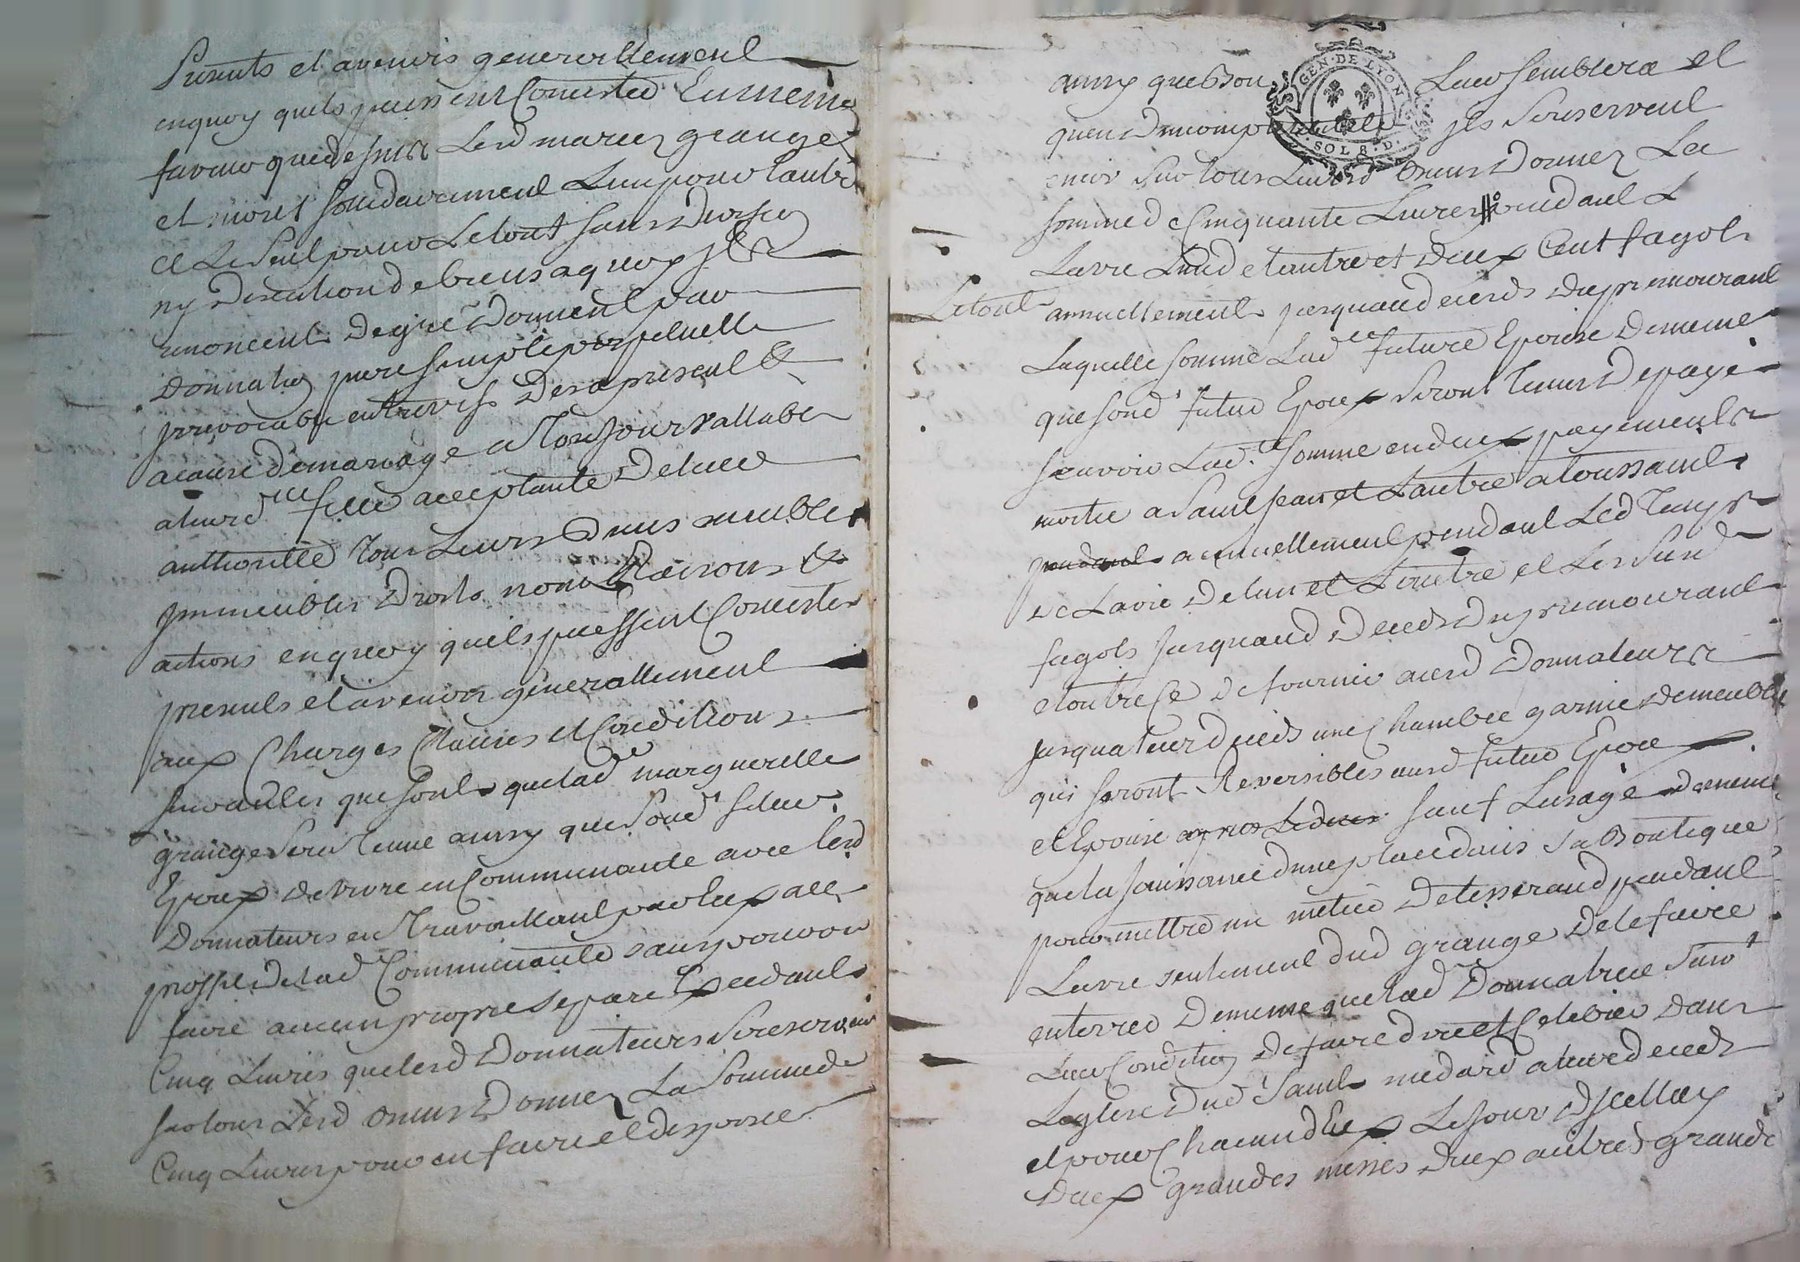 presents et avenirs generallement
enquoy quils puissent Consister Enmeme
faveur quedessus Lesd mariez grange
et moret sollidairement Lunpour Lautre
et Le Seul pour Letout sans Division
ny Discution de biens aquoy jls
renoncent Degré Donnent par
Donnation pure simple perpetuelle
jrrevocable entrevifs Desapresent &
acause demariage a Tousjours vallable
aleurd fille acceptante Delad
authorité Tous Leurs Dnus meubles
jmmeubles Droits noms Raisons &
actions enquoy quils puissent Consister
presents et avenirs generallement
aux Charges Clauses et Conditions
suivantes que sont queladte marguerette
grange sera Tenue ainsy que Sond futur
Epoux de vivre en Communauté avec lesd
Donnateurs en Travaillant pour Eux au
proffit Delad Communauté sans pouvoir
faire aucun propre separé Excedant
Cinq Livres quelesd Donnateurs Sereservent
sur tous Lesd Biens Donnez La Sommede
Cinq Livres pour en faire et disposer
GEN · DE LYON
SOL 8 · D.
ainsy queBon Leur Semblera et
quen jls Sereservent
encor Sur tous Leursd Biens Donnez La
somme de Cinquante Livres pendant
Lavie Lund et Lautre et Deux Cent fagots
Letout
annuellement jusquaud deceds Dupremourant
Laquelle somme Lade future Epouse Dememe
que sond futur Epoux Seront Tenus Depayer
scavoir Lade somme endeux payements
moitié a Saint Jean et Lautre a Toussaints
pendant annuellement pendant Led Temps
de Lavie Delun et Lautre et Lesdud
fagots Jusquaud Deceds Dupremourant
et outre ce De fournir ausd Donnateurs
jusqualeurd deceds une Chambre garnie Demeubles
qui seront Reversibles ausd futur Epoux
et Epouse apres Led sauf Lusage Dememe
que la Jouissance Dune place dans Sa Boutique
pour mettre un metier De tisserand pendant
Lavie seulement dud grange De le faire
enterrer Dememe quelad Donnatrice Suivt
Leur Condition De faire dire et Celebrer dans
Leglise Dud Saint medard aleurd deceds
et pour Chacun deux Le jour Djcelluy
Deux grandes messes Deux autres grandes